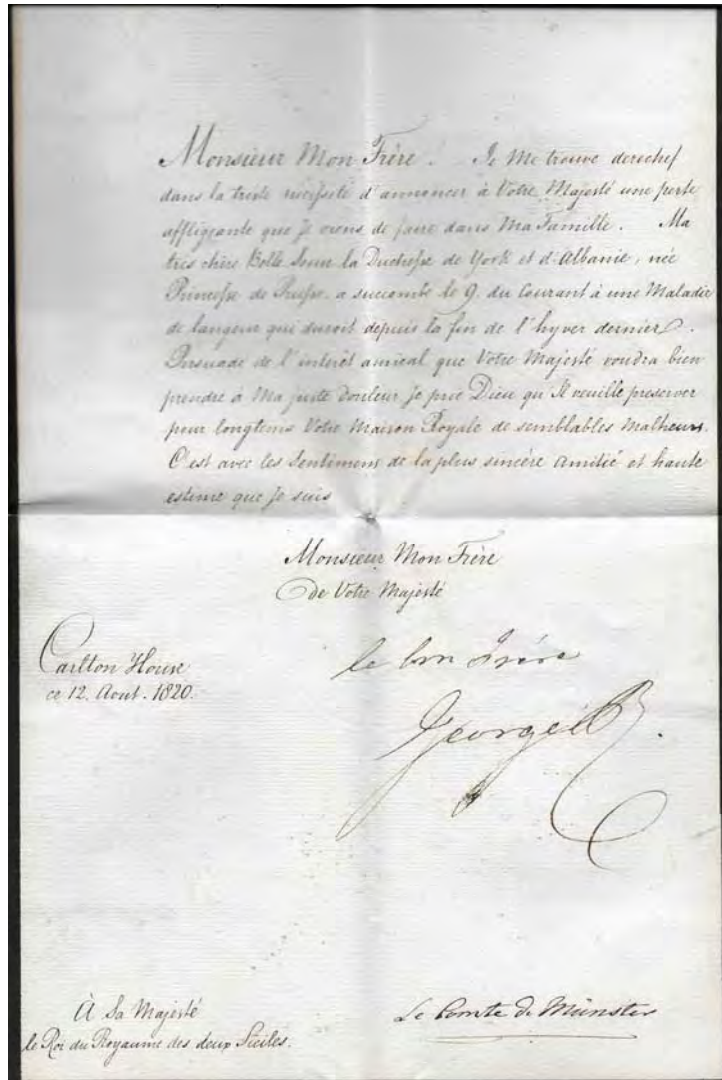 Monsieur Mon Frère. Je Me trouve derechef
dans la triste nécessité d'annoncer à Votre Majesté une perte
affligeante que je viens de faire dans Ma Famille. Ma
très chère Belle Soeur la Duchesse de York et d'Albanie, née
Princesse de Prusse, a succombé le 9. du Courant à une Maladie
de langeur qui duroit depuis la fin de l'hyver dernier.
Persuadé de l'intérêt amical que Votre Majesté voudra bien
prendre à Ma juste douleur je prie Dieu qu'Il veuille preserver
pour longtems Votre Maison Royale de semblables Malheurs.
C'est avec les Sentimens de la plus sincère Amitié et haute
estime que Je suis
Monsieur Mon Frère
de Votre Majesté
Carlton House
ce 12. Aout. 1820.
le bon Frère
George R.
À Sa Majesté
le Roi du Royaume des deux Siciles.
Le Comte de Münster